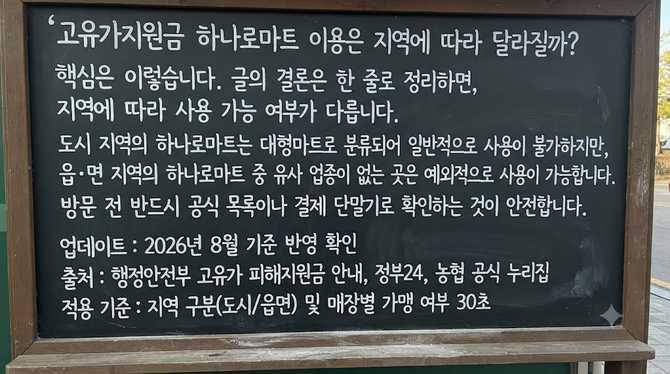 '고유가지원금 하나로마트 이용은 지역에 따라 달라질까?
핵심은 이렇습니다. 글의 결론은 한 줄로 정리하면,
지역에 따라 사용 가능 여부가 다릅니다.
도시 지역의 하나로마트는 대형마트로 분류되어 일반적으로 사용이 불가하지만,
읍·면 지역의 하나로마트 중 유사 업종이 없는 곳은 예외적으로 사용이 가능합니다.
방문 전 반드시 공식 목록이나 결제 단말기로 확인하는 것이 안전합니다.
업데이트 : 2026년 8월 기준 반영 확인
출처 : 행정안전부 고유가 피해지원금 안내, 정부24, 농협 공식 누리집
적용 기준 : 지역 구분(도시/읍면) 및 매장별 가맹 여부 30초